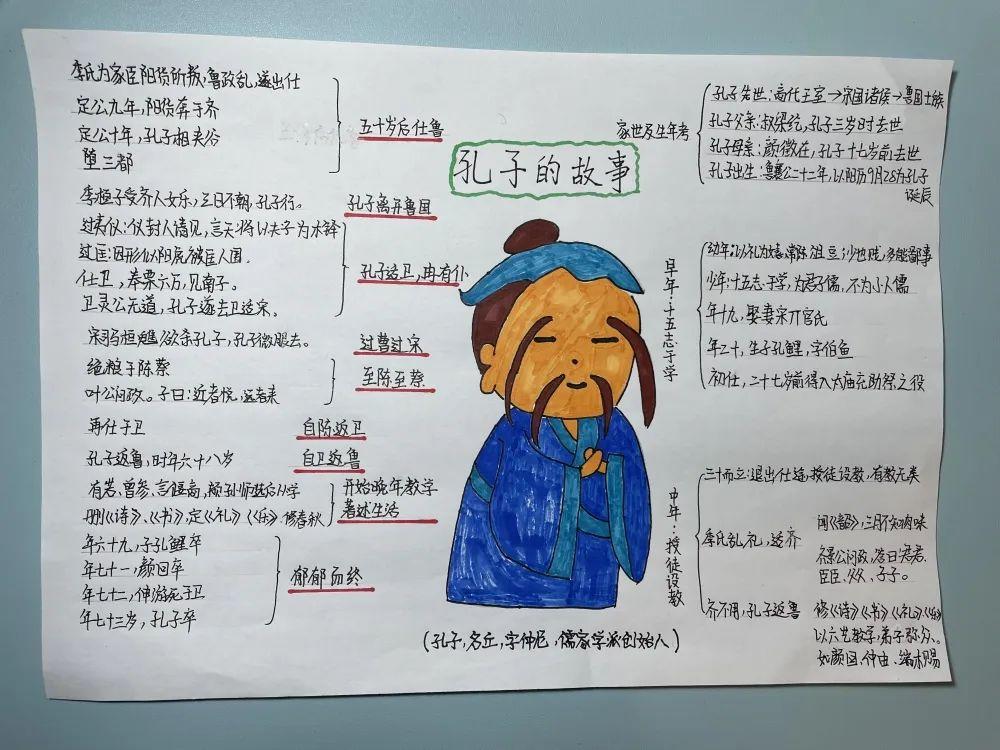 孔子的故事
家世及生年考
孔子先世：商代王室→宋国诸侯→鲁国士族
孔子父亲：叔梁纥，孔子三岁时去世
孔子母亲：颜徵在，孔子十七岁前去世
孔子出生：鲁襄公二十二年，以阳历9月28为孔子
诞辰
早年·十五志于学
幼年：以礼为嬉，常陈俎豆；少也贱，多能鄙事
少年：十五志于学，为君子儒，不为小人儒
年十九，娶妻宋亓官氏
年二十，生子孔鲤，字伯鱼
初仕，二十七岁前得入太庙充助祭之役
中年·授徒设教
三十而立：退出仕途，授徒设教，有教无类
季氏乱礼，适齐
闻《韶》，三月不知肉味
齐景公问政，答曰君君、
臣臣，父父，子子。
齐不用，孔子返鲁
修《诗》《书》《礼》《乐》
以六艺教学，弟子弥众。
如颜回、仲由、端木赐
五十岁后仕鲁
季氏为家臣阳货所叛，鲁政乱，遂出仕
定公九年，阳货奔于齐
定公十年，孔子相夹谷
堕三都
孔子离开鲁国
季桓子受齐人女乐，三日不朝，孔子行。
孔子适卫，冉有仆
过仪：仪封人请见，言天将以夫子为木铎
过匡：因形似阳虎被匡人围。
仕卫，奉粟六万，见南子。
卫灵公无道，孔子遂去卫适宋。
过曹过宋
宋司马桓魋欲杀孔子，孔子微服去。
至陈至蔡
绝粮于陈蔡
叶公问政。子曰：近者悦，远者来
自陈返卫
再仕于卫
自卫返鲁
孔子返鲁，时年六十八岁
开始晚年教学
著述生活
有若、曾参、言偃、颛孙师进后从学
删《诗》、《书》，定《礼》《乐》修春秋
郁郁而终
年六十九，子孔鲤卒
年七十一，颜回卒
年七十二，仲由死于卫
年七十三岁，孔子卒
（孔子，名丘，字仲尼，儒家学派创始人）